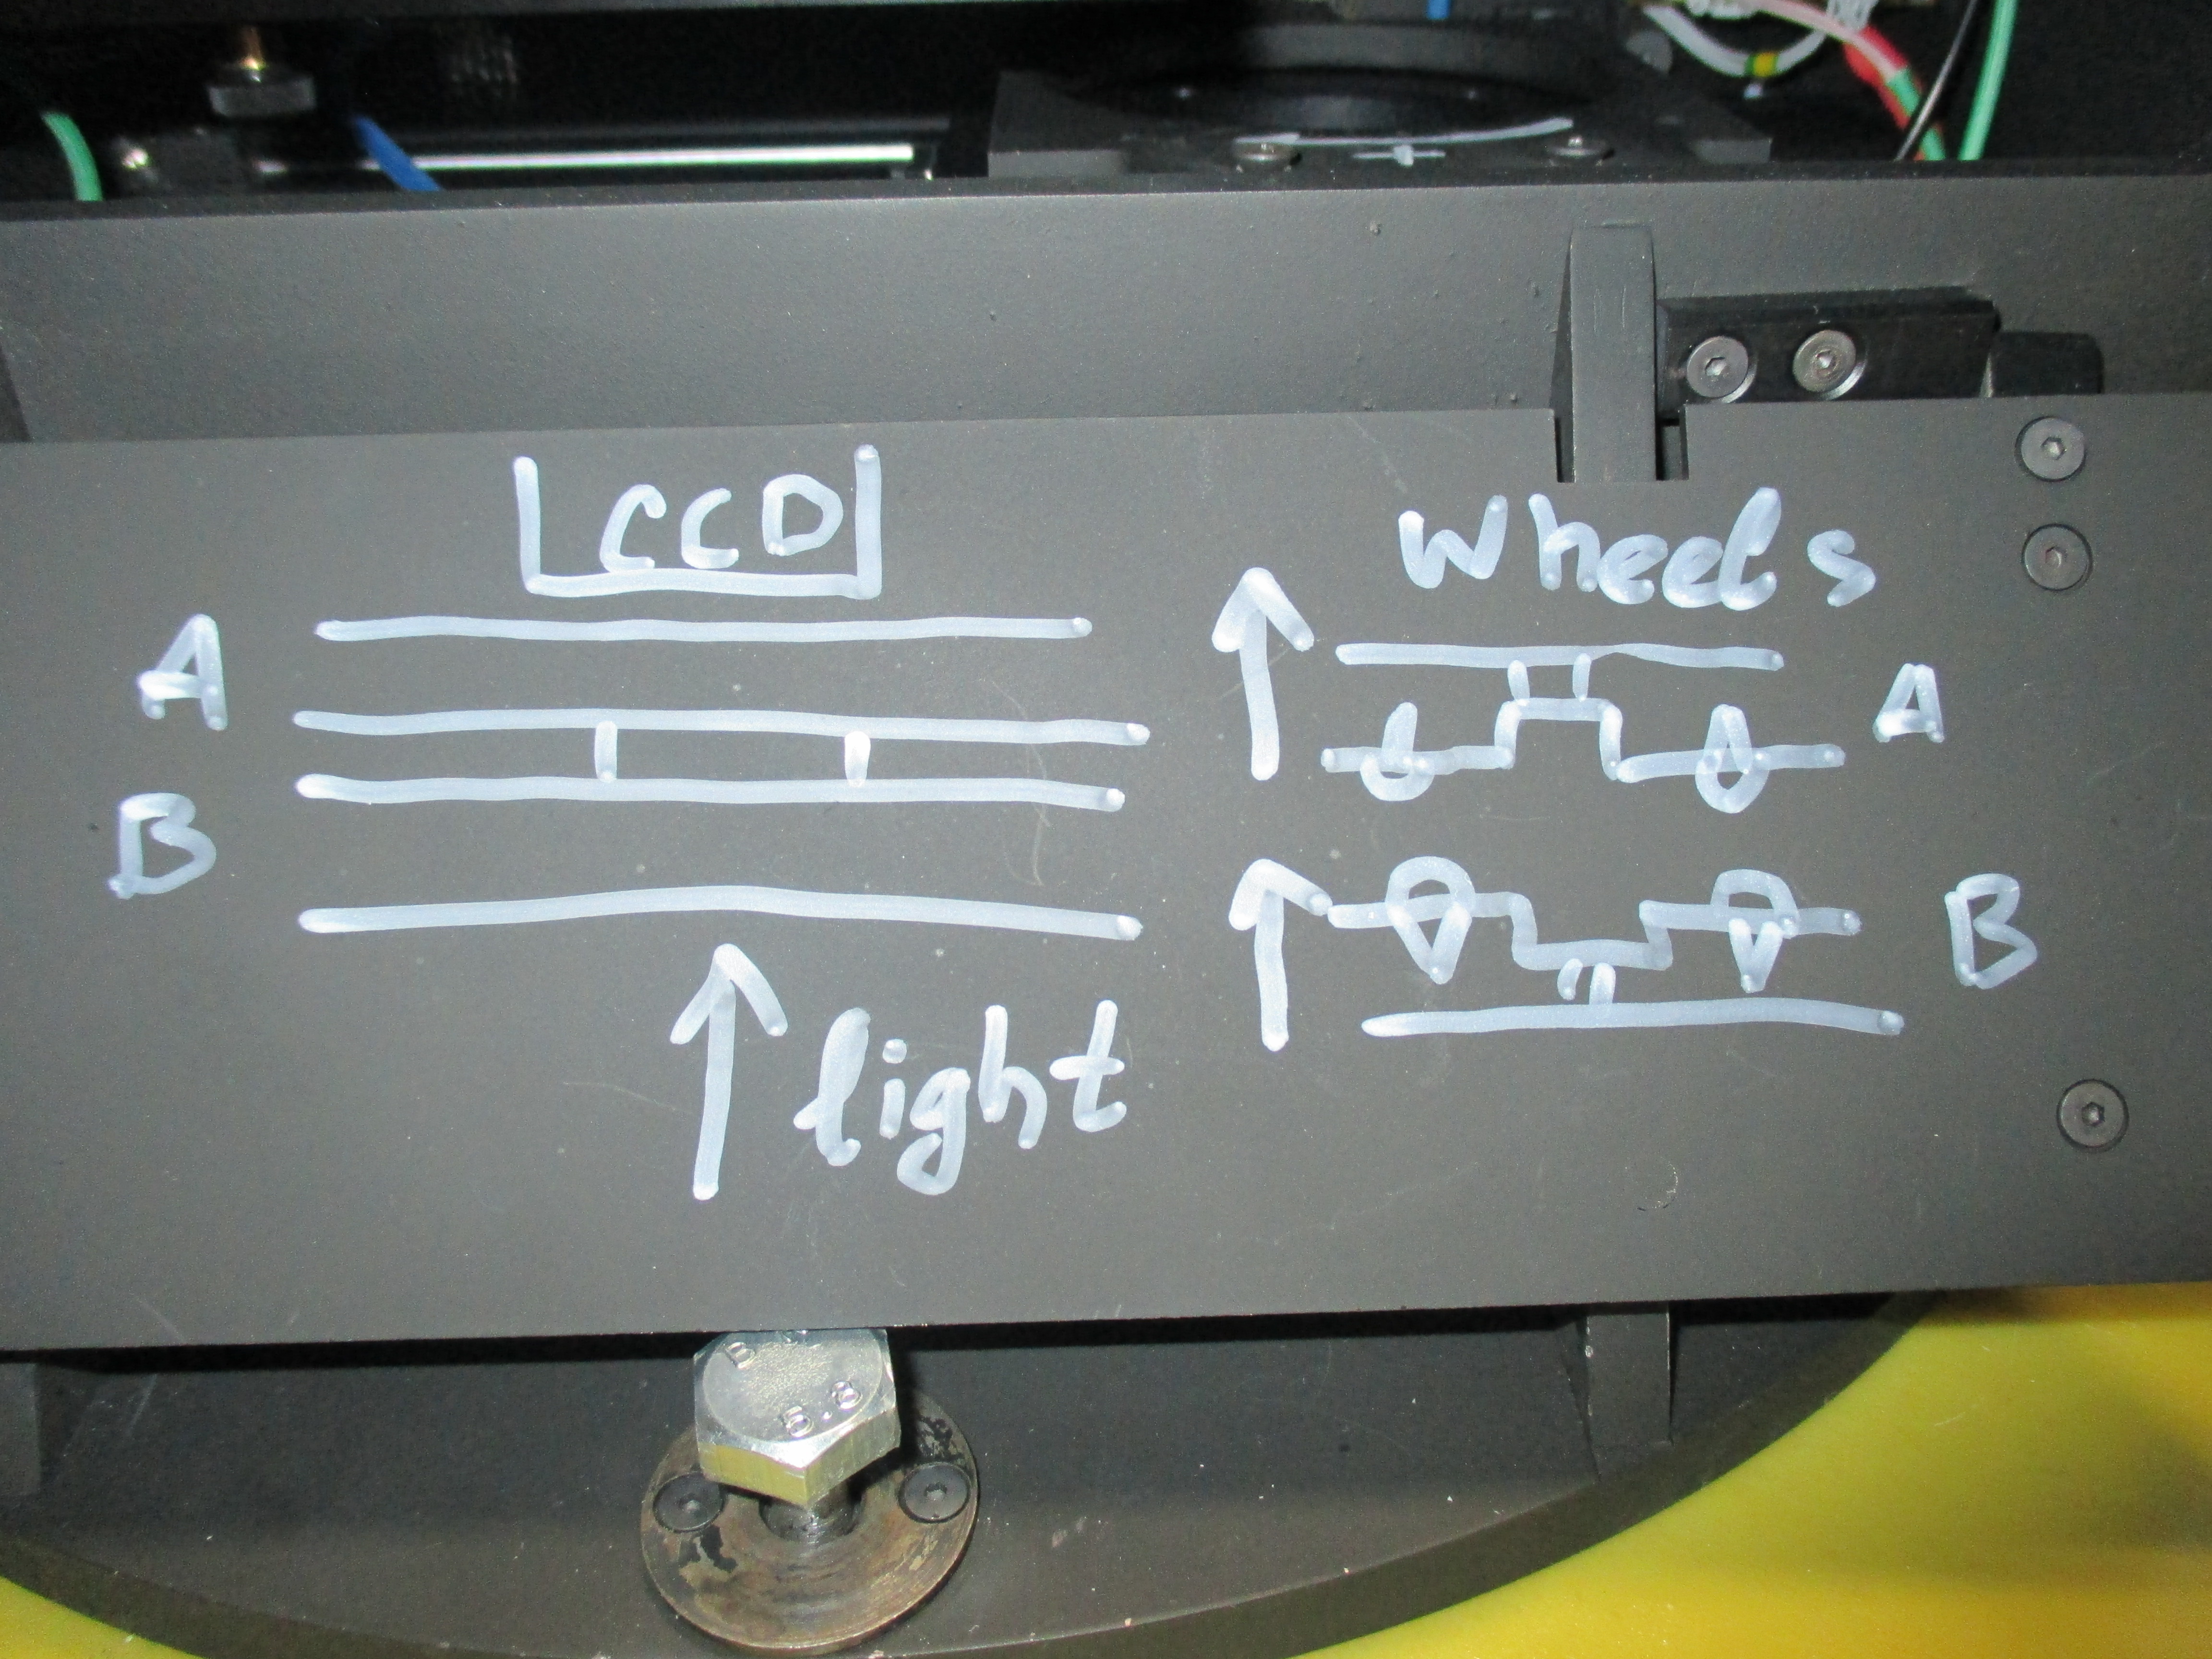 CCD
A
B
light
Wheels
A
B
5.8